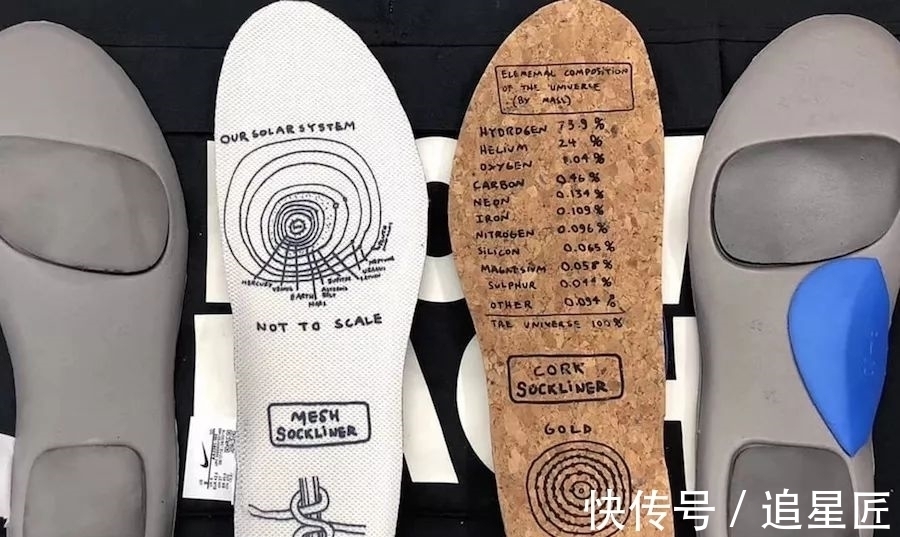 OUR SOLAR SYSTEM
MERCURY
VENUS
EARTH
MARS
ASTEROID
BELT
JUPITER
SATURN
URANUS
NEPTUNE
NOT TO SCALE
MESH
SOCKLINER
ELEMEMAL COMPOSITION
OF THE UNIVERSE
(BY MASS)
HYDROGEN 73.9 %
HELIUM 24 %
OXYGEN 1.04 %
CARBON 0.46 %
NEON 0.134 %
IRON 0.109 %
NITROGEN 0.096 %
SILICON 0.065 %
MAGNESIUM 0.058 %
SULPHUR 0.044 %
OTHER 0.094 %
THE UNIVERSE 100%
CORK
SOCKLINER
GOLD
快传号 / 追星匠